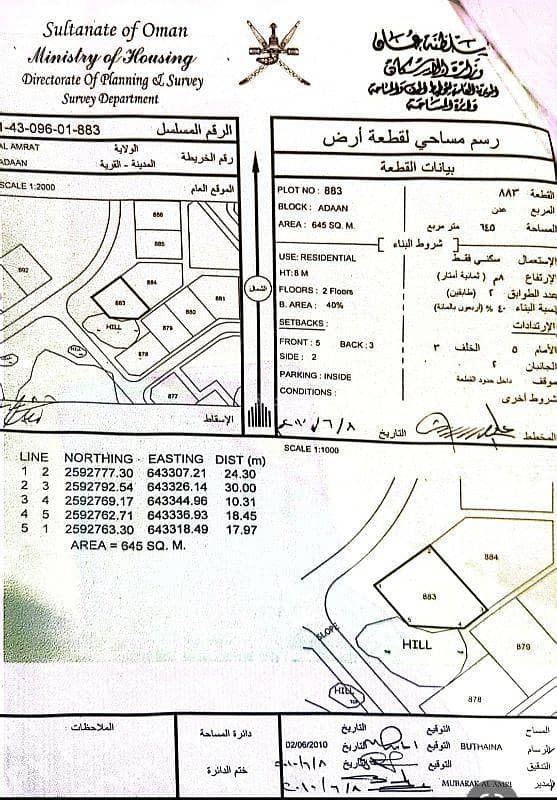 Sultanate of Oman
Ministry of Housing
Directorate Of Planning & Survey
Survey Department
سلطنة عمان
وزارة الإسكان
1-43-096-01-883 الرقم المسلسل
AL AMRAT الولاية
ADAAN المدينة - القرية
رقم الخريطة
SCALE 1:2000 الموقع العام
886
885
884
883
892
881
882
879
878
877
HILL
الإسقاط
الشمال
رسم مساحي لقطعة أرض
بيانات القطعة
PLOT NO : 883 القطعة ٨٨٣
BLOCK : ADAAN المربع عدن
AREA : 645 SQ. M. المساحة ٦٤٥ متر مربع
شروط البناء
USE: RESIDENTIAL الإستعمال سكني فقط
HT:8 M الإرتفاع ٨م (ثمانية أمتار)
FLOORS : 2 Floors عدد الطوابق ٢ (طابقين)
B. AREA : 40% نسبة البناء ٤٠ % (أربعون بالمائة)
SETBACKS : الإرتدادات
FRONT : 5 BACK : 3 الأمام ٥ الخلف ٣
SIDE : 2 الجانبان ٢
PARKING : INSIDE موقف داخل حدود القطعة
CONDITIONS : شروط أخرى
المخطط التاريخ
SCALE 1:1000
LINE NORTHING EASTING DIST (m)
1 2 2592777.30 643307.21 24.30
2 3 2592792.54 643326.14 30.00
3 4 2592769.17 643344.96 10.31
4 5 2592762.71 643336.93 18.45
5 1 2592763.30 643318.49 17.97
AREA = 645 SQ. M.
884
883
1
2
3
4
5
SLOPE
HILL
879
878
HILL
الملاحظات
دائرة المساحة
ختم الدائرة
المساح التوقيع التاريخ
الرسام BUTHAINA التوقيع التاريخ 02/06/2010
التدقيق التوقيع التاريخ
المدير MUBARAK AL AMRI